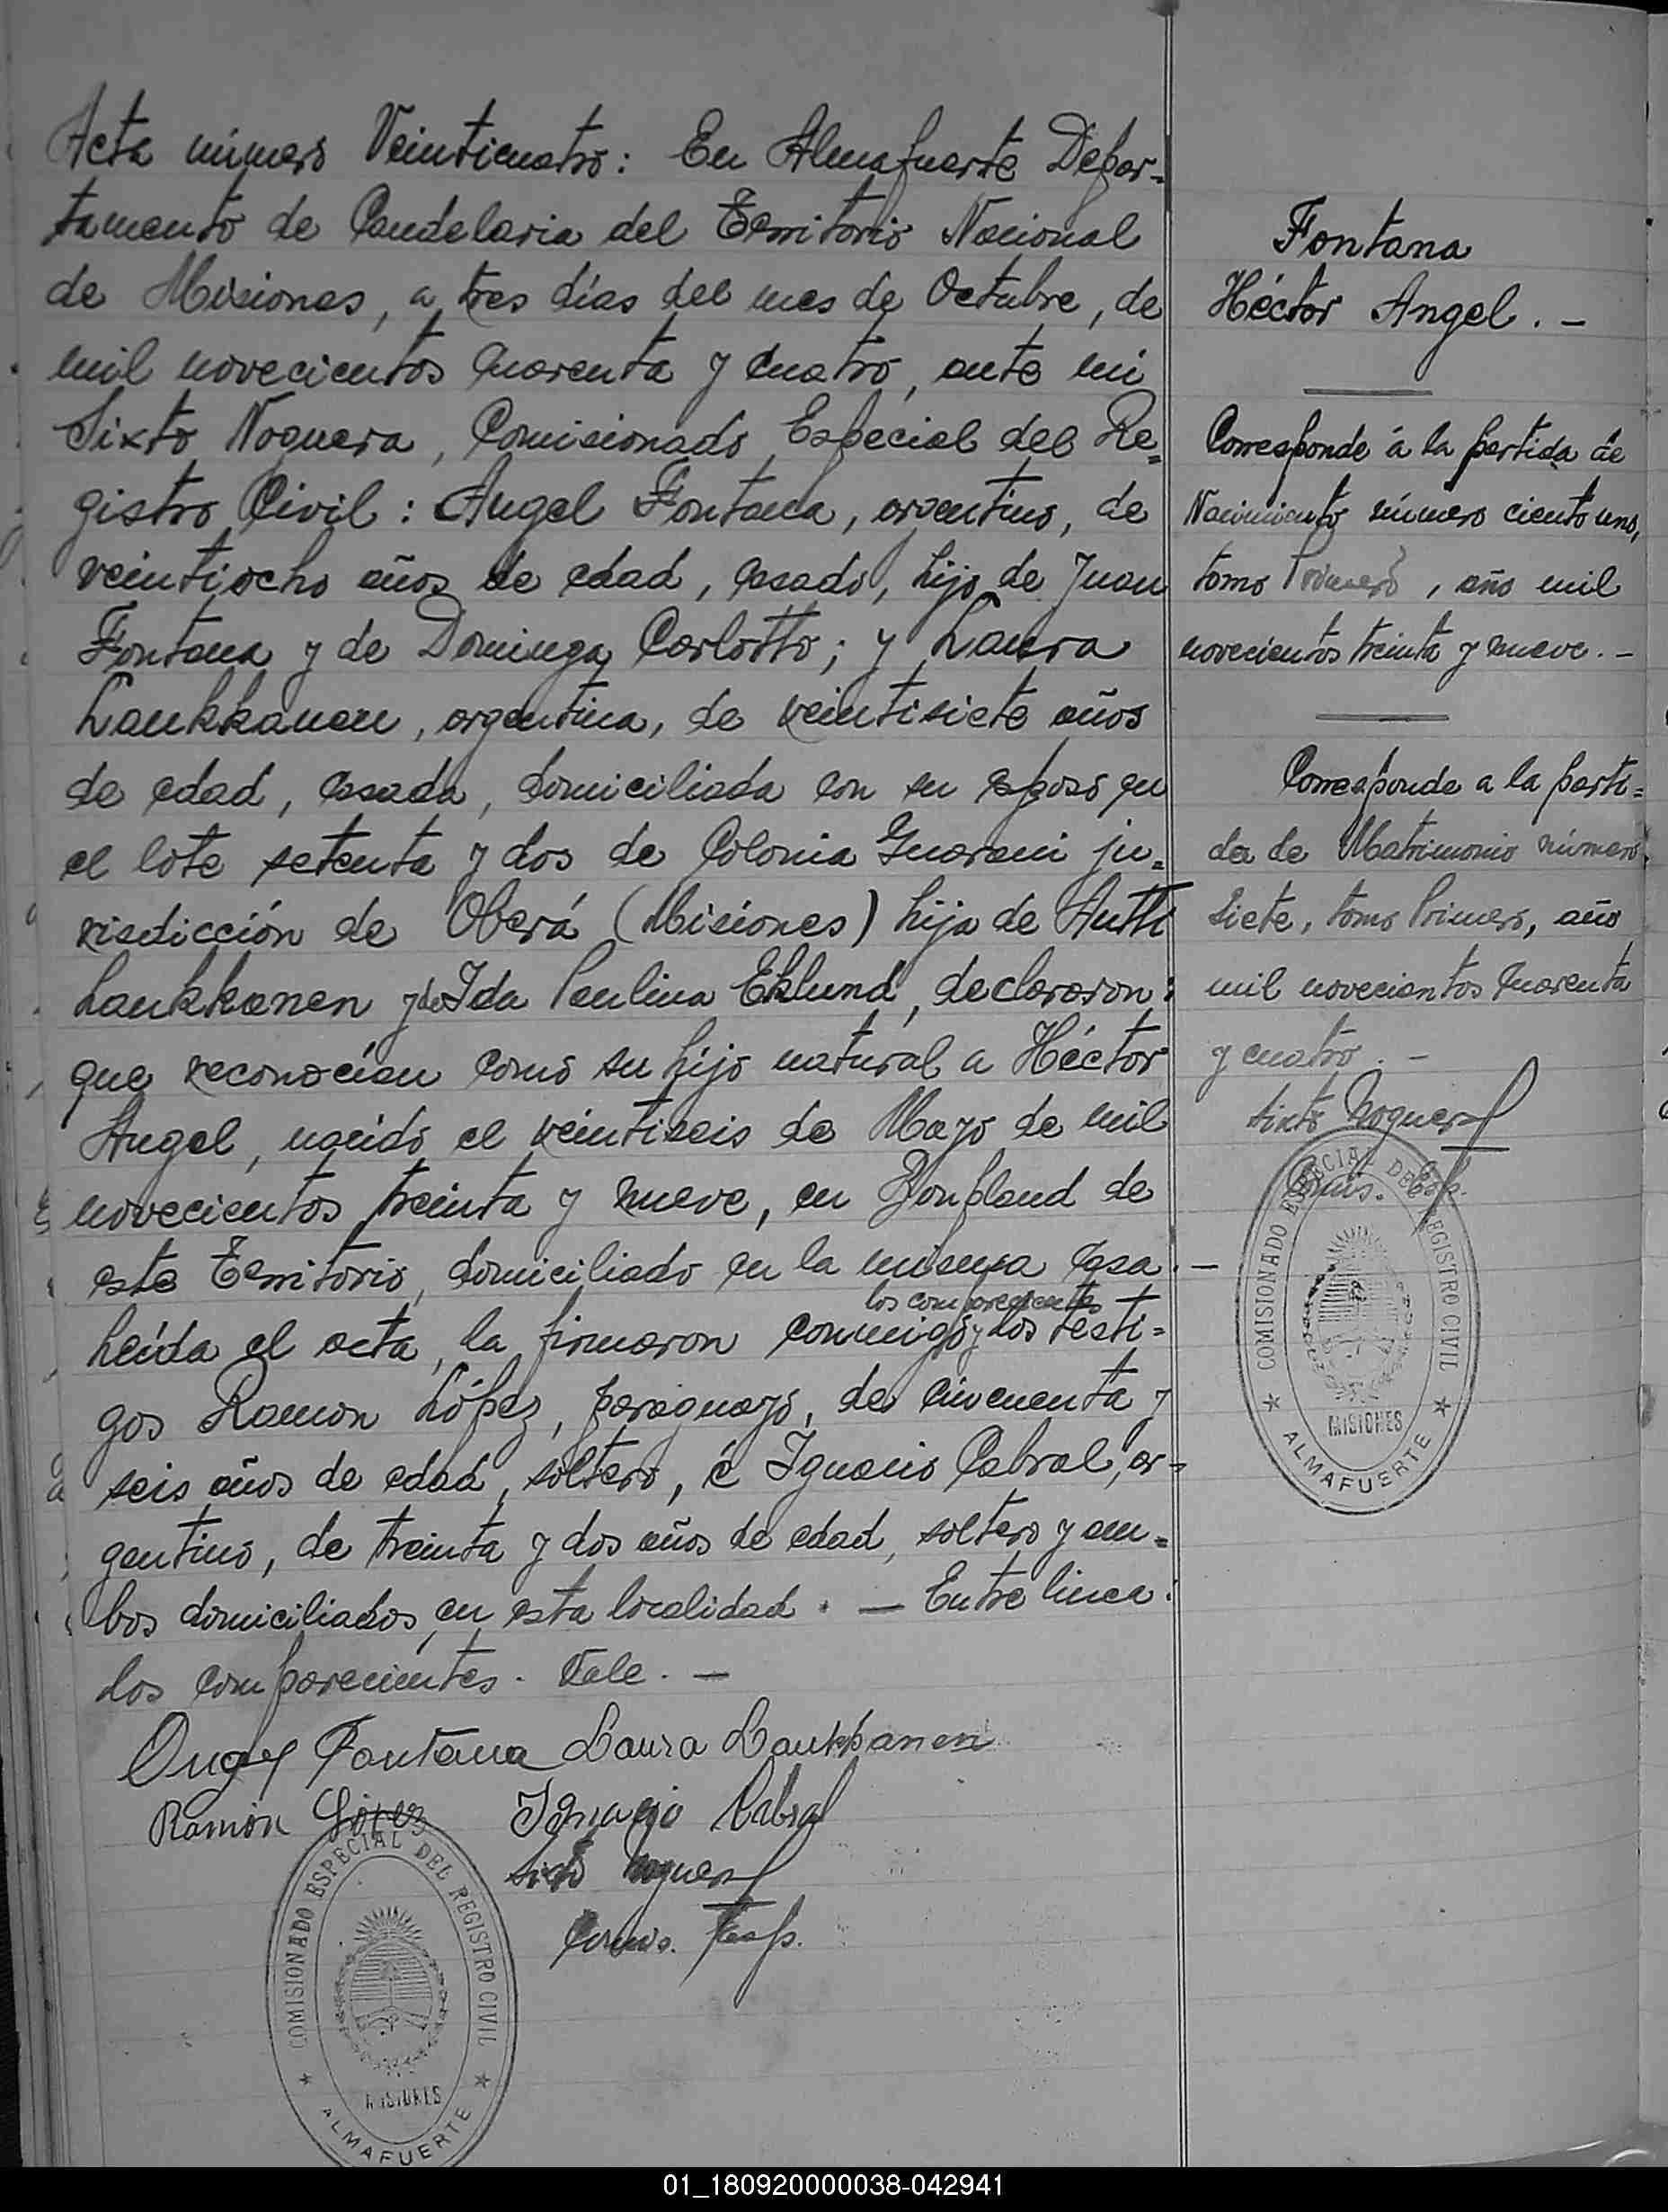 Acta número Veinticuatro: En Almafuerte Depar-
tamento de Candelaria del Territorio Nacional
de Misiones, a tres días del mes de Octubre, de
mil novecientos cuarenta y cuatro, ante mi
Sixto Noguera, Comisionado Especial del Re=
gistro Civil: Angel Fontana, argentino, de
veintiocho años de edad, casado, hijo de Juan
Fontana y de Dominga Carlotto; y Laura
Laukkanen, argentina, de veintisiete años
de edad, casada, domiciliada con su esposo en
el lote setenta y dos de Colonia Guarani ju=
risdicción de Oberá (Misiones) hija de Antti
Laukkanen y de Ida Paulina Eklund, declararon:
que reconocían como su hijo natural a Héctor
Angel, nacido el veintiseis de Mayo de mil
novecientos treinta y nueve, en Bonpland de
este Territorio, domiciliado en la misma casa.—
los comparecientes
Leída el acta, la firmaron conmigo y los testi=
gos Ramon López, paraguayo, de cincuenta y
seis años de edad, soltero, é Ignacio Cabral, ar=
gentino, de treinta y dos años de edad, soltero y am=
bos domiciliados en esta localidad. — Entre linea:
los comparecientes. Vale. —
Angel Fontana Laura Laukkanen
Ramón López Ignacio Cabral
Sixto Noguera
Comis. Esp.
COMISIONADO ESPECIAL DEL REGISTRO CIVIL
MISIONES
ALMAFUERTE
Fontana
Héctor Angel. —
Corresponde á la partida de
Nacimiento número ciento uno,
tomo Primero, año mil
novecientos treinta y nueve. —
Corresponde a la parti=
da de Matrimonio número
Siete, tomo Primero, año
mil novecientos cuarenta
y cuatro. —
Sixto Noguera
Comis. Esp.
COMISIONADO ESPECIAL DEL REGISTRO CIVIL
MISIONES
ALMAFUERTE
01_180920000038-042941